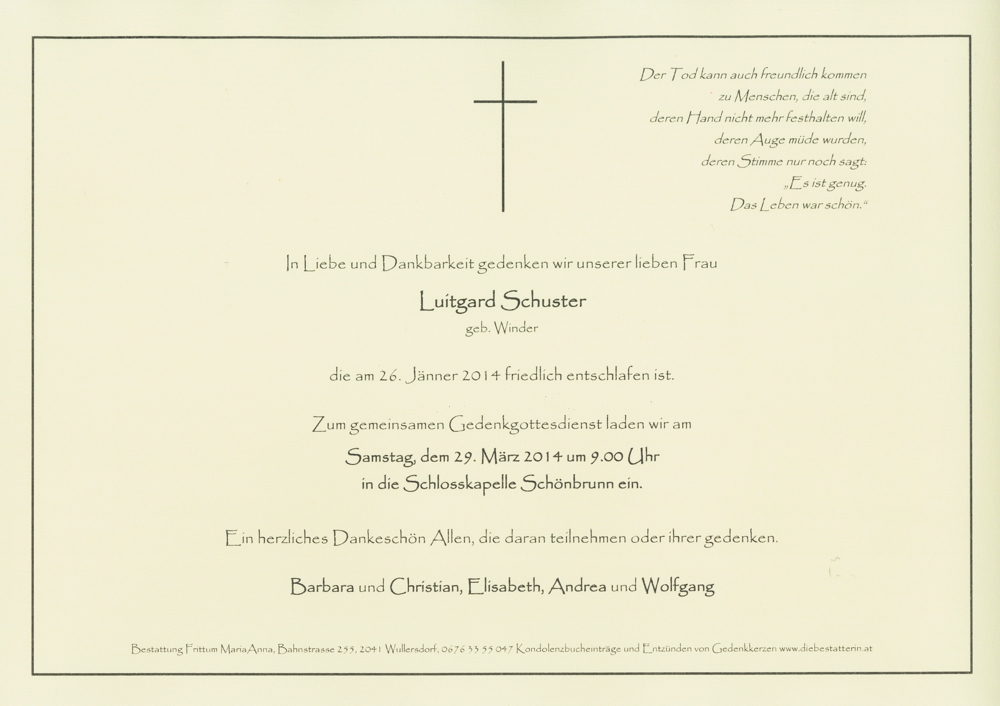 Der Tod kann auch freundlich kommen
zu Menschen, die alt sind,
deren Hand nicht mehr festhalten will,
deren Auge müde wurden,
deren Stimme nur noch sagt:
„Es ist genug.
Das Leben war schön.“
In Liebe und Dankbarkeit gedenken wir unserer lieben Frau
Luitgard Schuster
geb. Winder
die am 26. Jänner 2014 friedlich entschlafen ist.
Zum gemeinsamen Gedenkgottesdienst laden wir am
Samstag, dem 29. März 2014 um 9.00 Uhr
in die Schlosskapelle Schönbrunn ein.
Ein herzliches Dankeschön Allen, die daran teilnehmen oder ihrer gedenken.
Barbara und Christian, Elisabeth, Andrea und Wolfgang
Bestattung Frittum Maria Anna, Bahnstrasse 255, 2041 Wullersdorf, 0676 55 55 047 Kondolenzbucheinträge und Entzünden von Gedenkkerzen www.diebestatterin.at